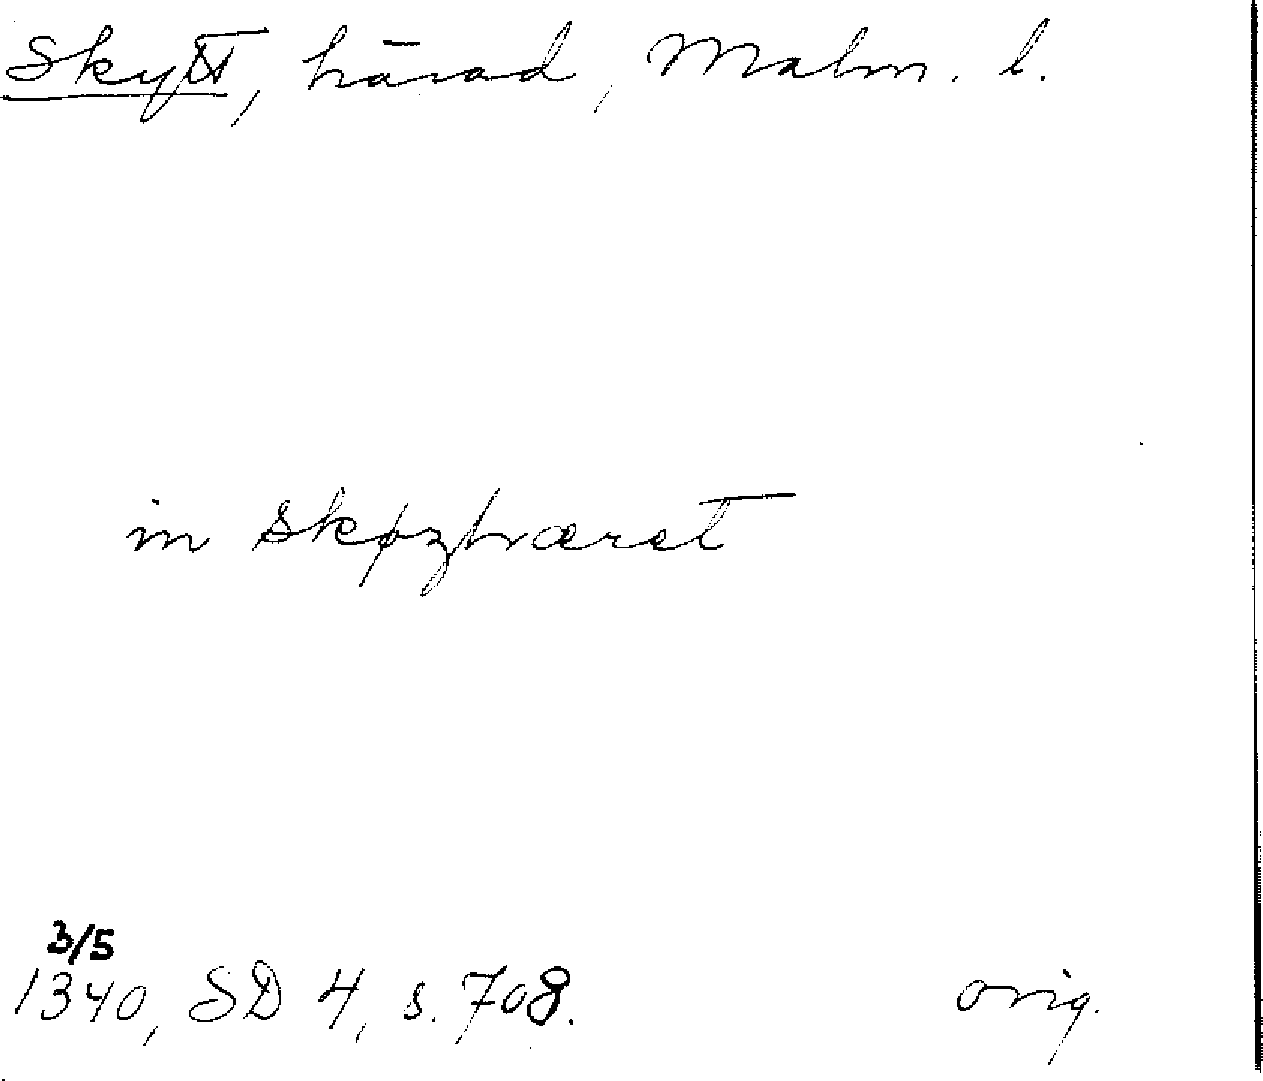 Skytt, härad, Malm. l.
in skøzhæret
3/5
1340, SD 4, s. 708. orig.